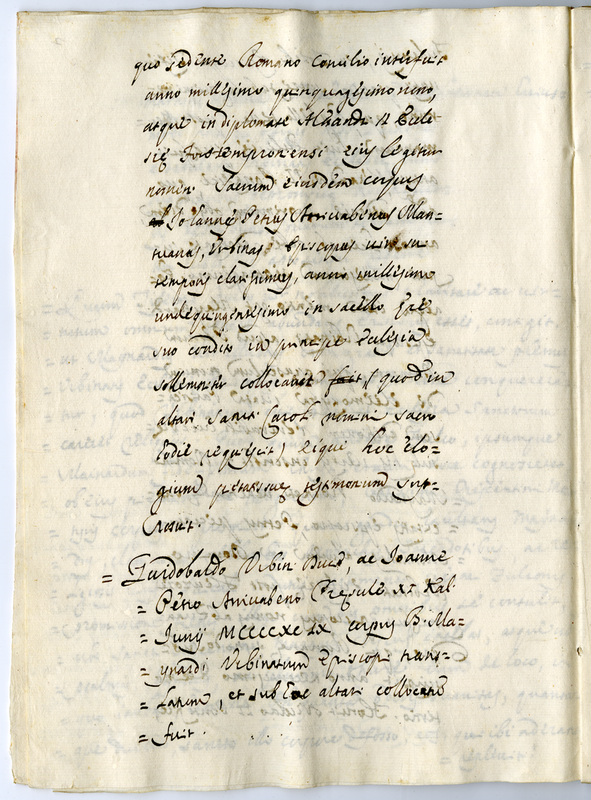 quo sedente Romano Concilio interfuit
anno millesimo quinquagesimo nono,
atque in diplomate Alexandri II Eccle
się Forosemproniensi eius legitur
nomen. Sacrum eiusdem corpus
Ioannes Petrus Arrivabenus Man=
tuanus, Urbinas Episcopus vir sui
temporis clarissimus, anno millesimo
undequingentesimo in sacello
suo condito in principe Ecclesia
sollemniter collocavit fuit, (quod in
altari sancti Caroli nomini sacro
hodie requiescit) eique hoc elo=
gium pietatis suę testimonium
= Guidobaldo Urbin. Duce, ac Ioanne
= Petro Arrivabeno Pręsule XI Kal.
= Iunij MCCCCXCIX corpus B. Ma=
= ynardi Urbinatum Episcopi trans=
= latum, et sub hoc altari collocatum
= fuit.